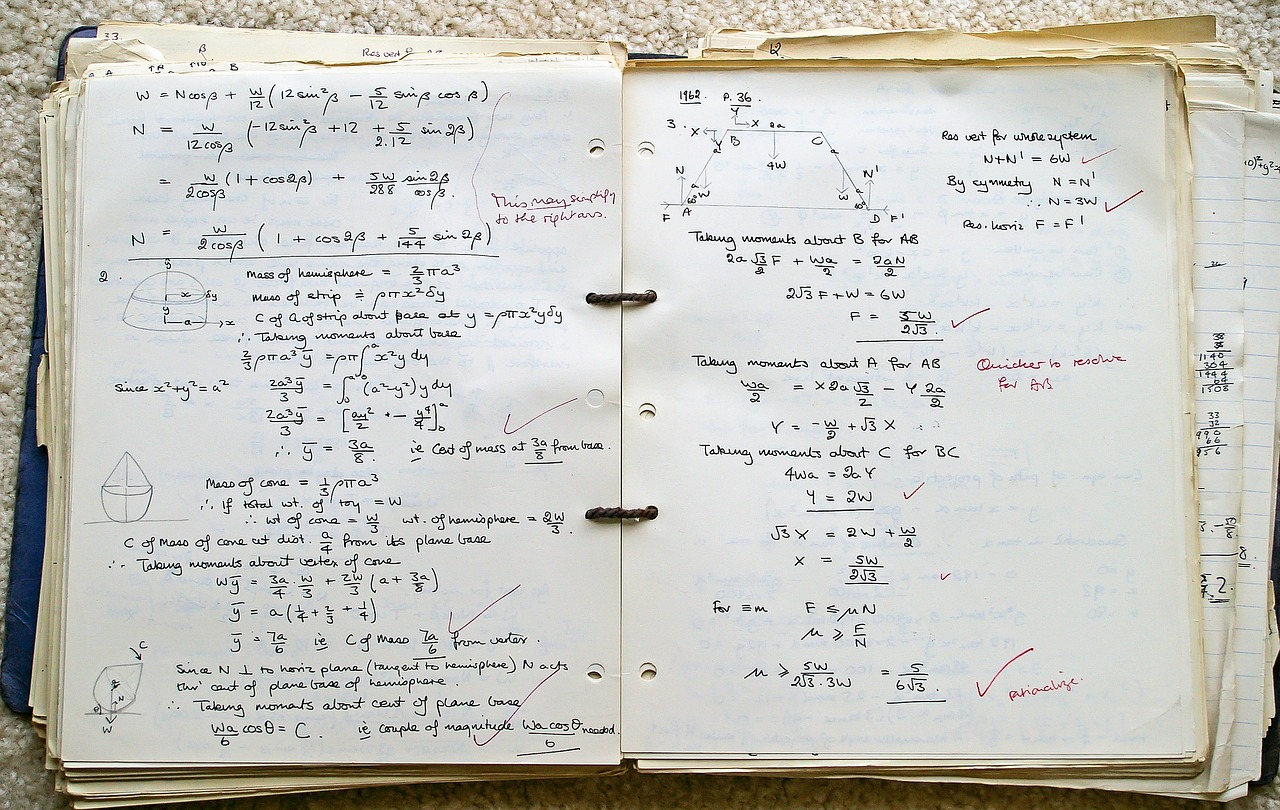 33.
β
Res vert
A
B
W = N cos β + W/12 (12 sin²β − 5/12 sin β cos β)
N = W/12cosβ (−12 sin²β + 12 + 5/2.12 sin 2β)
= W/2cosβ (1 + cos2β) + 5W/288 sin2β/cosβ.
This may simplify
to the right ans.
N = W/2cosβ (1 + cos2β + 5/144 sin 2β)
2.
y
x δy
y
a x
Mass of hemisphere = 2/3 πa³
Mass of strip ≑ ρπx²δy
C of G of strip about base at y = ρπx²yδy
∴ Taking moments about base
2/3 ρπa³ȳ = ρπ∫₀ᵃ x²y dy
Since x²+y²=a² 2a³ȳ/3 = ∫₀ᵃ (a²−y²)y dy
2a³ȳ/3 = [ay²/2 − y⁴/4]₀ᵃ
∴ ȳ = 3a/8 ie Cent of mass at 3a/8 from base.
Mass of cone = 1/3 ρπa³
∴ If total wt. of toy = W
∴ wt of cone = W/3 wt. of hemisphere = 2W/3.
C of Mass of cone at dist. a/4 from its plane base
∴ Taking moments about vertex of cone
Wȳ = 3a/4 · W/3 + 2W/3 (a + 3a/8)
ȳ = a(1/4 + 2/3 + 1/4)
ȳ = 7a/6 ie C of Mass 7a/6 from vertex.
C
N
θ
W
Since N ⊥ to horiz plane (tangent to hemisphere) N acts
thro' cent of plane base of hemisphere.
∴ Taking moments about cent of plane base
Wa/6 cosθ = C. ie couple of magnitude Wa cosθ/6 needed.
12.
1962. P. 36.
3.
Y
X X 2a
B C
Y a a
4W
N a a N'
W W
60° 60°
F A D F'
Res vert for whole system
N+N' = 6W
By symmetry N = N'
∴ N = 3W
Res. horiz F = F'
Taking moments about B for AB
2a √3/2 F + Wa/2 = 2aN/2
2√3 F + W = 6W
F = 5W/2√3.
Taking moments about A for AB
Quicker to resolve
for AB
Wa/2 = X 2a √3/2 − Y 2a/2
Y = −W/2 + √3 X
Taking moments about C for BC
4Wa = 2aY
Y = 2W
√3 X = 2W + W/2
X = 5W/2√3
For ≡m F ≤ μN
μ ≥ F/N
μ ≥ 5W/2√3·3W = 5/6√3.
rationalize.
38
38
1140
304
1444
64
1508
33
32
990
66
956